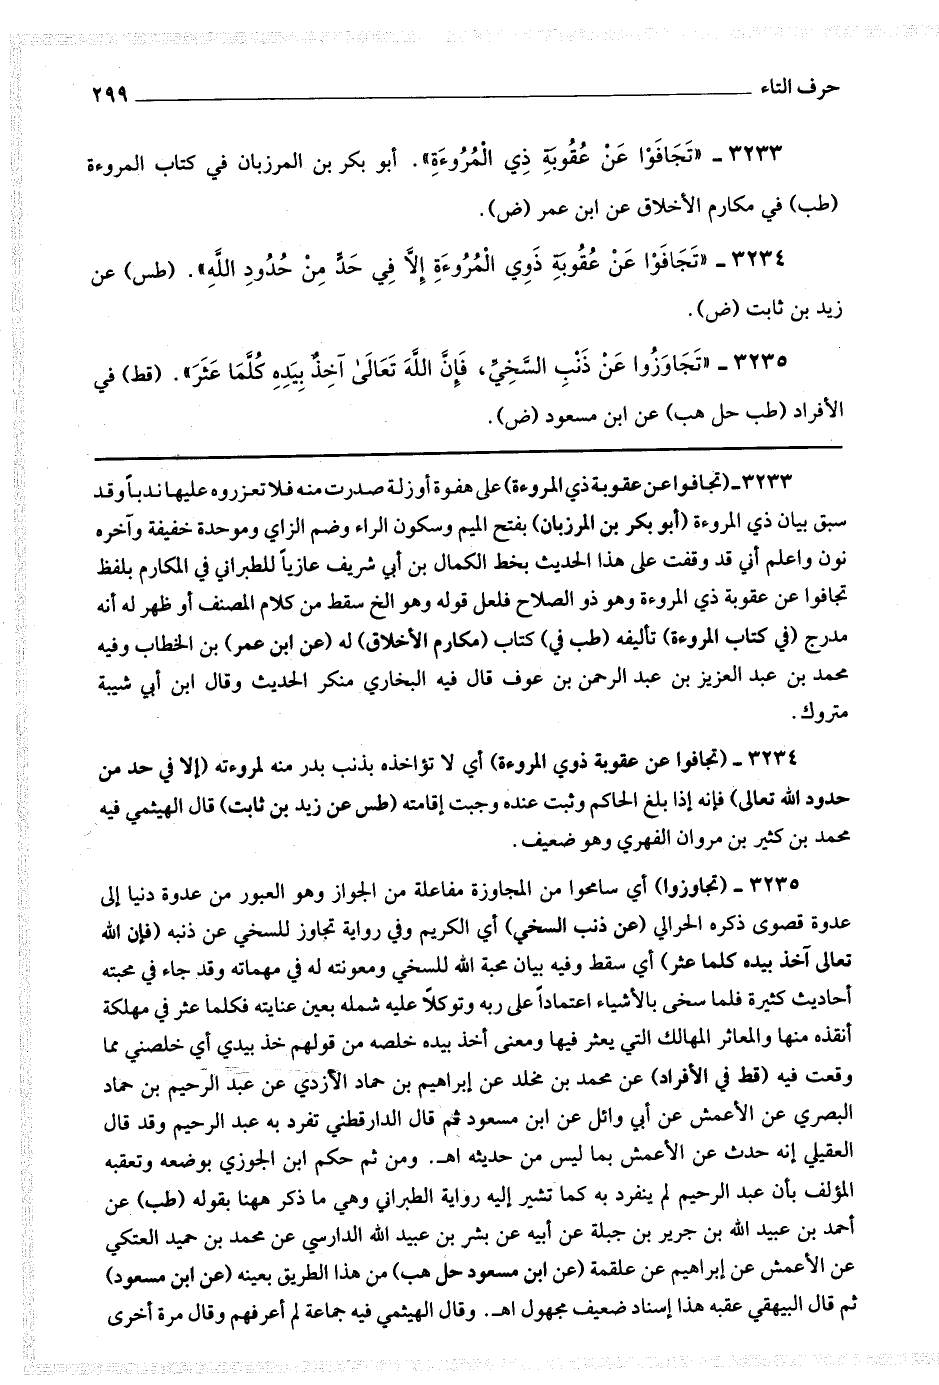 حرف التاء ٢٩٩
٣٢٣٣ ـ «تَجَافَوْا عَنْ عُقُوبَةِ ذِي الْمُرُوءَةِ». أبو بكر بن المرزبان في كتاب المروءة
(طب) في مكارم الأخلاق عن ابن عمر (ض).
٣٢٣٤ ـ «تَجَافَوْا عَنْ عُقُوبَةِ ذَوِي الْمُرُوءَةِ إِلاَّ فِي حَدٍّ مِنْ حُدُودِ اللَّهِ». (طس) عن
زيد بن ثابت (ض).
٣٢٣٥ ـ «تَجَاوَزُوا عَنْ ذَنْبِ السَّخِيِّ، فَإِنَّ اللَّهَ تَعَالَىٰ آخِذٌ بِيَدِهِ كُلَّمَا عَثَرَ». (قط) في
الأفراد (طب حل هب) عن ابن مسعود (ض).
٣٢٣٣ـ (تجافوا عن عقوبة ذي المروءة) على هفوة أو زلة صدرت منه فلا تعزروه عليها ندباً وقد
سبق بيان ذي المروءة (أبو بكر بن المرزبان) بفتح الميم وسكون الراء وضم الزاي وموحدة خفيفة وآخره
نون واعلم أني قد وقفت على هذا الحديث بخط الكمال بن أبي شريف عازياً للطبراني في المكارم بلفظ
تجافوا عن عقوبة ذي المروءة وهو ذو الصلاح فلعل قوله وهو الخ سقط من كلام المصنف أو ظهر له أنه
مدرج (في كتاب المروءة) تأليفه (طب في) كتاب (مكارم الأخلاق) له (عن ابن عمر) بن الخطاب وفيه
محمد بن عبد العزيز بن عبد الرحمن بن عوف قال فيه البخاري منكر الحديث وقال ابن أبي شيبة
متروك.
٣٢٣٤ ـ (تجافوا عن عقوبة ذوي المروءة) أي لا تؤاخذه بذنب بدر منه لمروءته (إلا في حد من
حدود الله تعالى) فإنه إذا بلغ الحاكم وثبت عنده وجبت إقامته (طس عن زيد بن ثابت) قال الهيثمي فيه
محمد بن كثير بن مروان الفهري وهو ضعيف.
٣٢٣٥ ـ (تجاوزوا) أي سامحوا من المجاوزة مفاعلة من الجواز وهو العبور من عدوة دنيا إلى
عدوة قصوى ذكره الحرالي (عن ذنب السخي) أي الكريم وفي رواية تجاوز للسخي عن ذنبه (فإن الله
تعالى آخذ بيده كلما عثر) أي سقط وفيه بيان محبة الله للسخي ومعونته له في مهماته وقد جاء في محبته
أحاديث كثيرة فلما سخى بالأشياء اعتماداً على ربه وتوكلاً عليه شمله بعين عنايته فكلما عثر في مهلكة
أنقذه منها والمعاثر المهالك التي يعثر فيها ومعنى أخذ بيده خلصه من قولهم خذ بيدي أي خلصني مما
وقعت فيه (قط في الأفراد) عن محمد بن مخلد عن إبراهيم بن حماد الأزدي عن عبد الرحيم بن حماد
البصري عن الأعمش عن أبي وائل عن ابن مسعود ثم قال الدارقطني تفرد به عبد الرحيم وقد قال
العقيلي إنه حدث عن الأعمش بما ليس من حديثه اهـ. ومن ثم حكم ابن الجوزي بوضعه وتعقبه
المؤلف بأن عبد الرحيم لم ينفرد به كما تشير إليه رواية الطبراني وهي ما ذكر ههنا بقوله (طب) عن
أحمد بن عبيد الله بن جرير بن جبلة عن أبيه عن بشر بن عبيد الله الدارسي عن محمد بن حميد العتكي
عن الأعمش عن إبراهيم عن علقمة (عن ابن مسعود حل هب) من هذا الطريق بعينه (عن ابن مسعود)
ثم قال البيهقي عقبه هذا إسناد ضعيف مجهول اهـ. وقال الهيثمي فيه جماعة لم أعرفهم وقال مرة أخرى